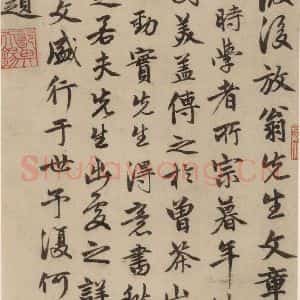 後放翁先生文章
時學者所宗暮年
美蓋傳之於曾茶山
動實先生得意書
之若夫先生出處之詳
文盛行于世予復何
題
Shufawang.CN